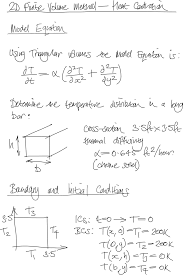 2D Finite Volume Method — Heat Conduction
Model Equation
Using Triangular Volumes the Model Equation is:
∂T/∂t = α (∂²T/∂x² + ∂²T/∂y²)
Determine the temperature distribution in a long
bar:
cross-section 3.5ft x 3.5ft
h
thermal diffusivity
α = 0.645 ft²/hour
(chrome steel)
b
Boundary and Initial Conditions
T₃
3.5
ICs: t=0 → T=0
T₂
T₄
BCs: T(x,0) = T₁ = 200K
T(0,y) = T₂ = 200K
T(x,h) = T₃ = 0K
T₁ 3.5
T(b,y) = T₄ = 0K